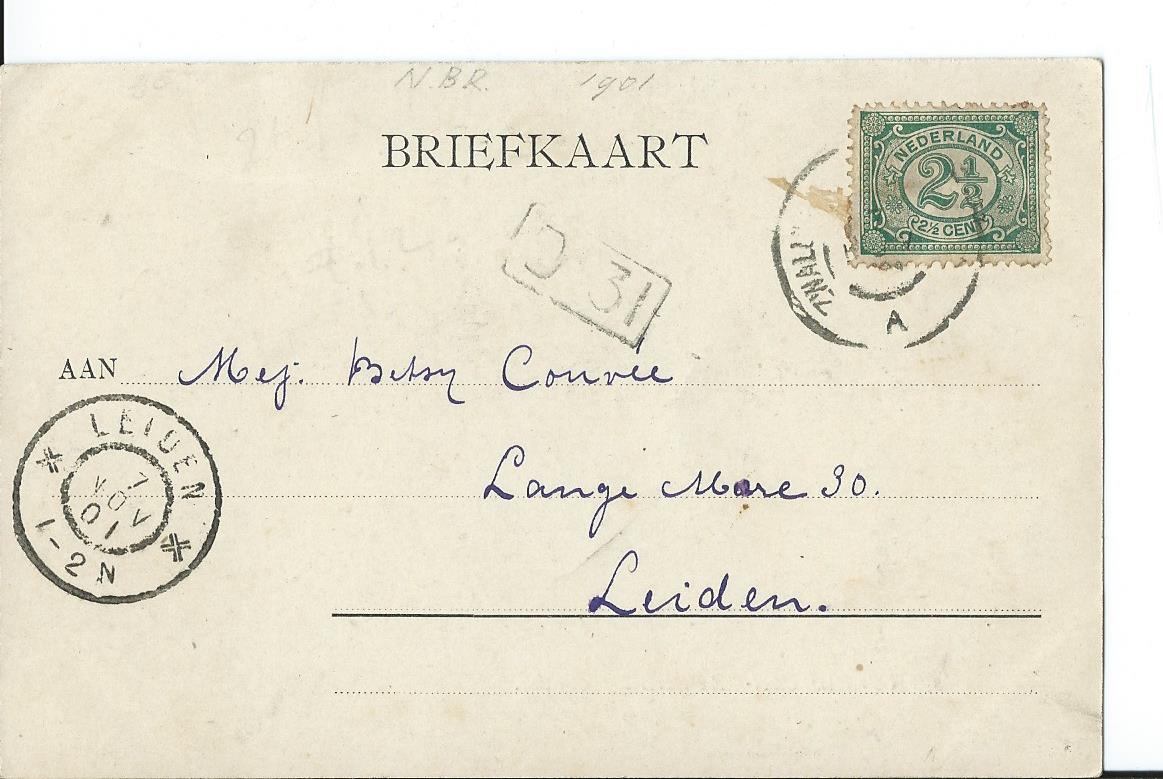 N.BR. 1901
BRIEFKAART
NEDERLAND
2 1/2
2 1/2 CENT
A
D 31
AAN Mej. Betsy Couvée
Lange Mare 30.
Leiden.
LEIDEN
7 NOV
01
1-2 N